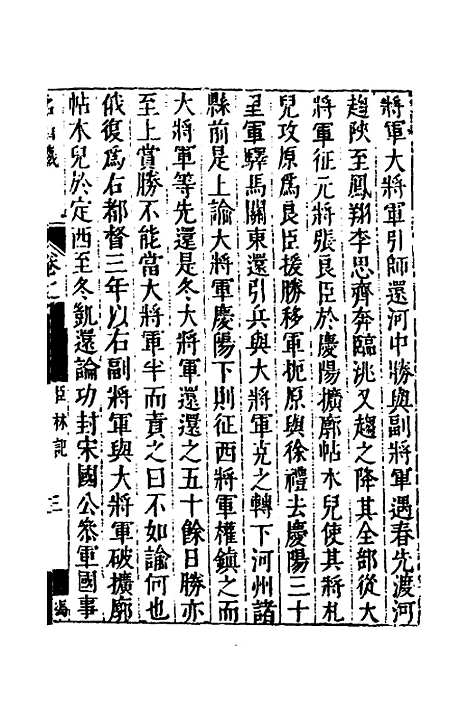 將軍大將軍引師還河中勝與副將軍遇春先渡河
趨陝至鳳翔李思齊奔臨洮又趨之降其全部從大
將軍征元將張良臣於慶陽擴廓帖木兒使其將札
兒攻原爲良臣援勝移軍扼原與徐禮去慶陽三十
里軍驛馬關東還引兵與大將軍克之轉下河州諸
縣前是上諭大將軍慶陽下則征西將軍權鎮之而
大將軍等先還是冬大將軍還還之五十餘日勝亦
至上賞勝不能當大將軍半而責之曰不如諭何也
俄復爲右都督三年以右副將軍與大將軍破擴廓
帖木兒於定西至冬凱還論功封宋國公叅軍國事
名山藏 卷之 臣林記 三